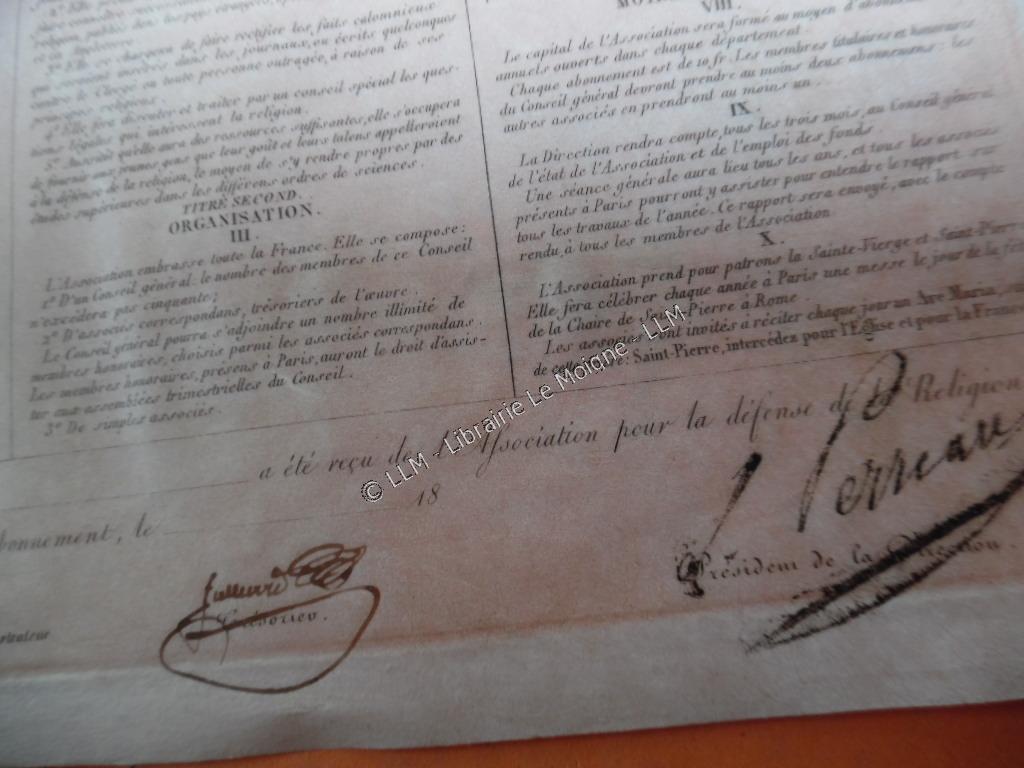 religion, publiés dans les pays étrangers,
et en Angleterre.
3º Elle se chargera de faire rectifier les faits calomnieux
qui seroient insérés dans les journaux, ou écrits quelconques
contre le Clergé ou toute personne outragée, à raison de ses
principes religieux.
4º Elle fera discuter et traiter par un conseil spécial les ques-
tions légales qui intéressent la religion.
5º Aussitôt qu'elle aura des ressources suffisantes, elle s'occupera
de fournir aux jeunes gens que leur goût et leurs talens appelleroient
à la défense de la religion, le moyen de s'y rendre propres par des
études supérieures dans les différens ordres de sciences.
TITRE SECOND.
ORGANISATION.
III.
L'Association embrasse toute la France. Elle se compose:
1º D'un Conseil général: le nombre des membres de ce Conseil
n'excédera pas cinquante;
2º D'associés correspondans, trésoriers de l'œuvre.
Le Conseil général pourra s'adjoindre un nombre illimité de
membres honoraires, choisis parmi les associés correspondans.
Les membres honoraires, présens à Paris, auront le droit d'assis-
ter aux assemblées trimestrielles du Conseil.
3º De simples associés.
VIII.
Le capital de l'Association sera formé au moyen d'abonnemens
annuels ouverts dans chaque département.
Chaque abonnement est de 10 fr. Les membres titulaires et honoraires
du Conseil général devront prendre au moins deux abonnemens: les
autres associés en prendront au moins un.
IX.
La Direction rendra compte, tous les trois mois, au Conseil général
de l'état de l'Association et de l'emploi des fonds.
Une séance générale aura lieu tous les ans, et tous les associés
présents à Paris pourront y assister pour entendre le rapport sur
tous les travaux de l'année. Ce rapport sera envoyé, avec le compte
rendu, à tous les membres de l'Association.
X.
L'Association prend pour patrons la Sainte-Vierge et Saint-Pierre.
Elle fera célébrer chaque année à Paris une messe le jour de la fête
de la Chaire de Saint-Pierre à Rome.
Les associés sont invités à réciter chaque jour un Ave Maria,
de cette: Saint-Pierre, intercédez pour l'Eglise et pour la France
a été reçu de l'Association pour la défense de la Religion
bonnement, le 18
Trésorier.
Perreau
Président de la Direction.
© LLM - Librairie Le Moigne - LLM